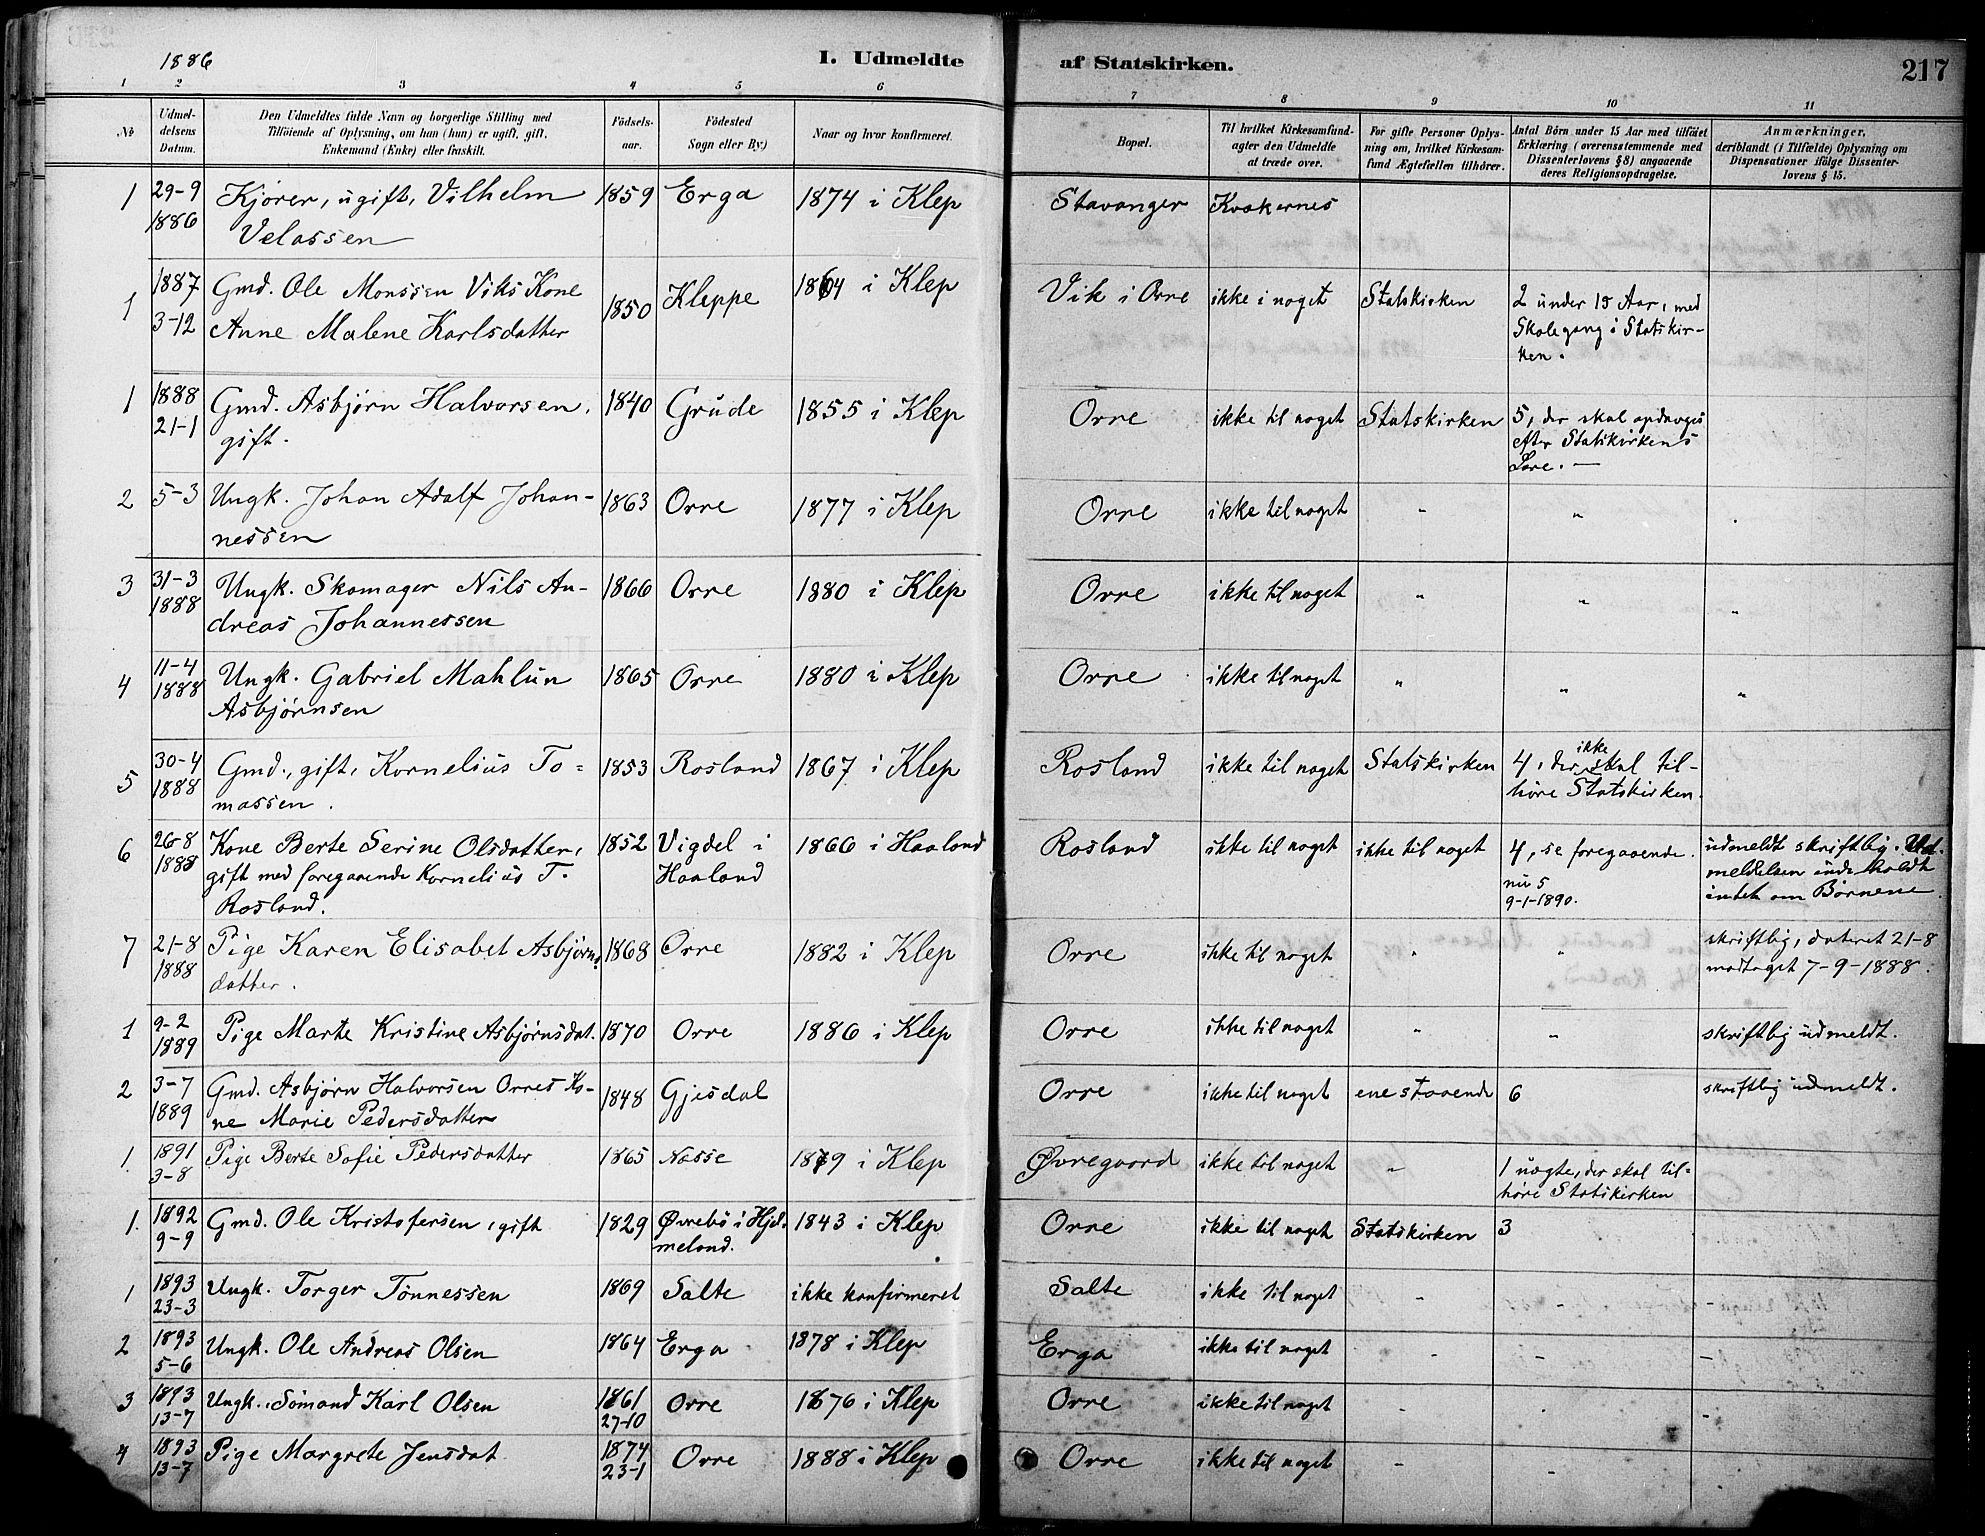 1886
I. Udmeldte af Statskirken.
217
1 2 3 4 5 6 7 8 9 10 11
No
Udmel-
delsens
Datum.
Den Udmeldtes fulde Navn og borgerlige Stilling med
Tilföiende af Oplysning, om han (hun) er ugift, gift,
Enkemand (Enke) eller fraskilt.
Födsels-
aar.
Födested
Sogn eller By.)
Naar og hvor konfirmeret.
Bopæl.
Til hvilket Kirkesamfund
agter den Udmeldte
at træde over.
For gifte Personer Oplys-
ning om, hvilket Kirkesam-
fund Ægtefællen tilhörer.
Antal Börn under 15 Aar med tilföiet
Erklæring (overensstemmende med
Dissenterlovens § 8) angaaende
deres Religionsopdragelse.
Anmærkninger,
deriblandt (i Tilfælde) Oplysning om
Dispensationer ifölge Dissenter-
lovens § 15.
1 29-9 Kjører, ugift, Vilhelm 1859 Erga 1874 i Klep Stavanger Kvækernes
1886 Velassen
1 1887 Gmd. Ole Monssen Viks Kone 1850 Kleppe 1864 i Klep Vik i Orre ikke i noget Statskirken 2 under 15 Aar, med
3-12 Anne Malene Karlsdatter Skolegang i Statskir-
ken.
1 1888 Gmd. Asbjørn Halvorsen, 1840 Grude 1855 i Klep Orre ikke til noget Statskirken 5, der skal opdrages
21-1 gift. efter Statskirkens
Lære. —
2 5-3 Ungk. Johan Adolf Johan- 1863 Orre 1877 i Klep Orre ikke til noget " "
nessen
3 31-3 Ungk. Skomager Nils An- 1866 Orre 1880 i Klep Orre ikke til noget " " "
1888 dreas Johannessen
4 11-4 Ungk. Gabriel Mahlun 1865 Orre 1880 i Klep Orre ikke til noget " " "
1888 Asbjørnsen
5 30-4 Gmd., gift, Kornelius To= 1853 Rosland 1867 i Klep Rosland ikke til noget Statskirken 4, der ikke skal til-
1888 massen. høre Statskirken.
6 26-8 Kone Berte Serine Olsdatter, 1852 Vigdel i 1866 i Haaland Rosland ikke til noget ikke til noget 4, se foregaaende. udmeldt skriftlig. Ud-
1888 gift med foregaaende Kornelius T. Haaland nu 5 meldelsen indeholdt
Rosland. 9-1-1890. intet om Børnene
7 21-8 Pige Karen Elisabet Asbjørns 1868 Orre 1882 i Klep Orre ikke til noget " " skriftlig, dateret 21-8
1888 datter. modtaget 7-9-1888.
1 9-2 Pige Marte Kristine Asbjørnsdat. 1870 Orre 1886 i Klep Orre ikke til noget " " skriftlig udmeldt.
1889
2 3-7 Gmd. Asbjørn Halvorsen Orres Ko- 1848 Gjesdal Orre ikke til noget enestaaende 6 skriftlig udmeldt.
1889 ne Marie Pedersdatter
1. 1891 Pige Berte Sofie Pedersdatter 1865 Nasse 1879 i Klep Øvregaard ikke til noget " 1 uægte, der skal til-
3-8 høre Statskirken
1. 1892 Gmd. Ole Kristofersen, gift 1829 Øvrebø i Hjel- 1843 i Klep Orre ikke til noget Statskirken 3
9-9 meland.
1 1893 Ungk. Torger Tønnessen 1869 Salte ikke konfirmeret Salte ikke til noget - - -
23-3
2 1893 Ungk. Ole Andreas Olsen 1864 Erga 1878 i Klep Erga ikke til noget - - -
5-6
3 1893 Ungk. Sømand Karl Olsen 1861 Orre 1876 i Klep Orre ikke til noget - - -
13-7 27-10
4 1893 Pige Margrete Jensdat 1874 Orre 1888 i Klep Orre ikke til noget - -
13-7 23-1